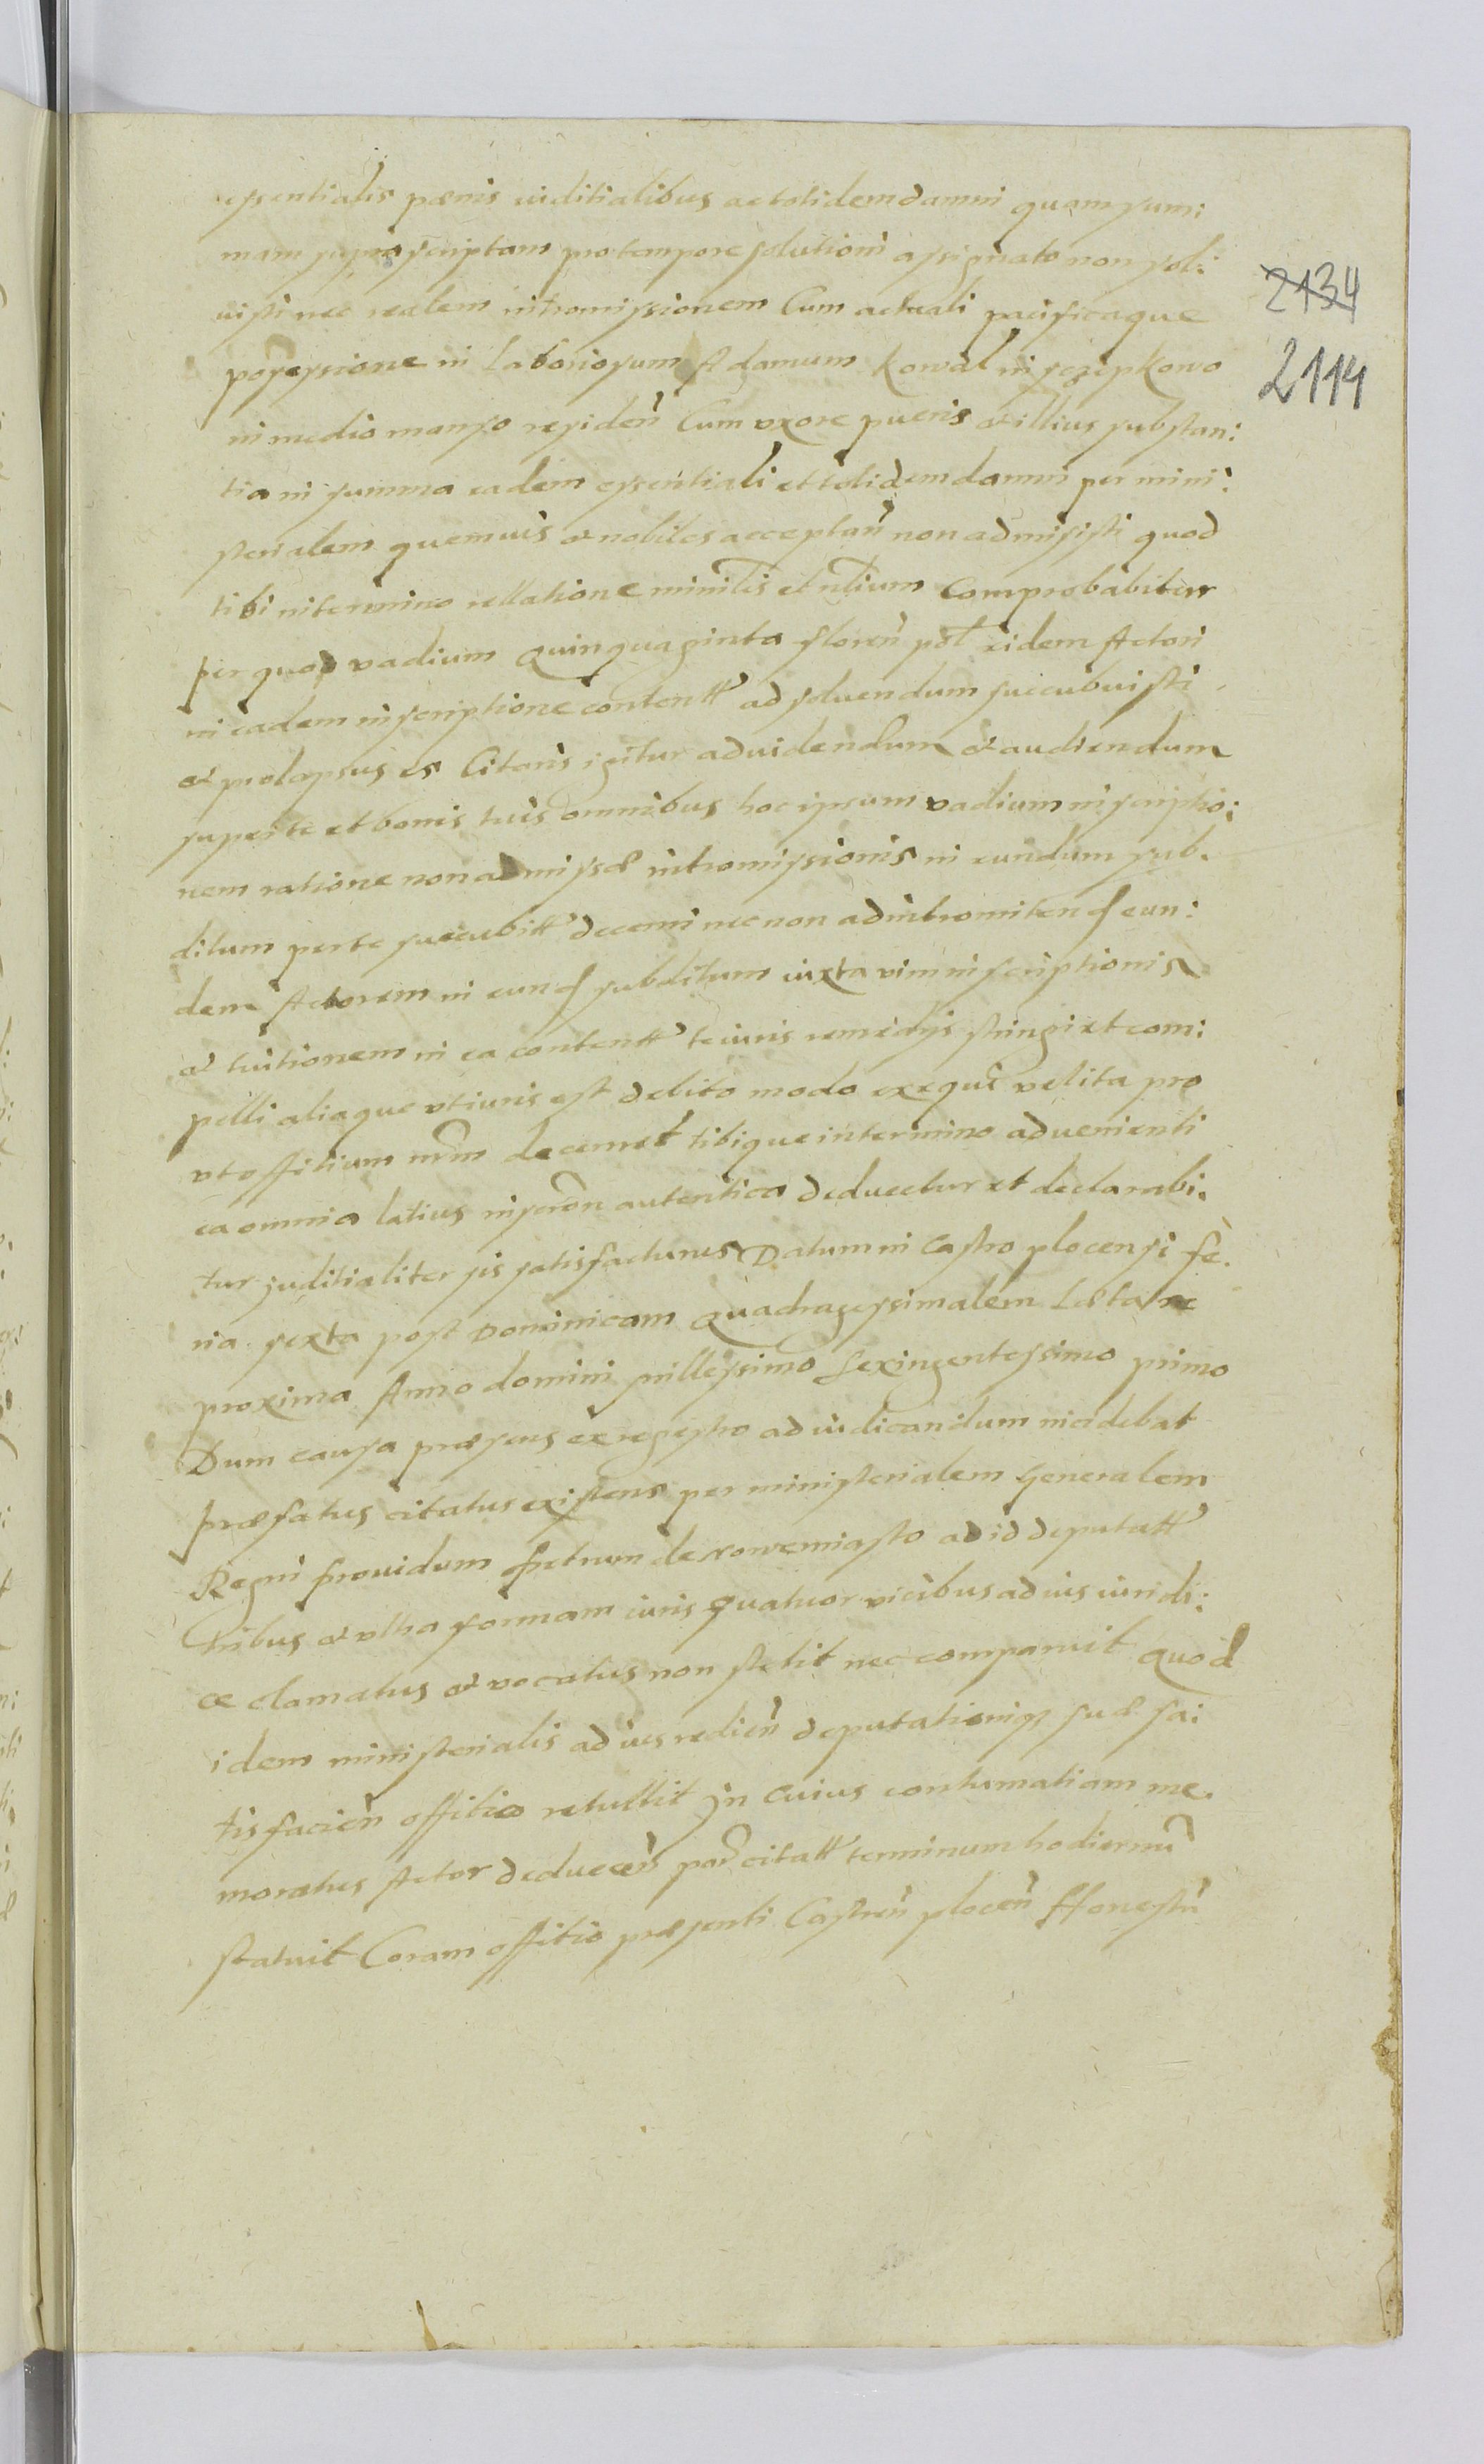 essentialis pœnis iuditialibus ac totidem damni quam sum:
mam suprascriptam pro tempore solutioni assignato non sol:
uisti nec realem intromissionem Cum actuali pacificaque
possessione in Laboriosum Adamum Kowal in sczepkowo
in medio manso residen̄ Cum vxore pueris & illius substan:
tia in summa eadem essentiali et totidem damni per mini:
sterialem quemuis & nobiles acceptan̄ non admisisti quod
tibi in termino rellatione minīlis et nlīum Comprobabitur
per quod vadium Quinquaginta floren̄ pol eidem Actori
in eadem inscriptione contentt ad soluendum succubuisti
& prolapsus es Citaris igitur ad uidendum & audiendum
super te et bonis tuis omnibus hoc ipsum vadium inscriptio:
nem ratione non admissæ intromissionis in eundum sub.
ditum per te succubitt decerni nec non ad intromitend eun:
dem Actorem in eund subditum iuxta vim inscriptionis
& tuitionem in ea contentt te iuris remedijs stringi et com:
pelli aliaque vti iuris est debito modo exequi velita pro
vt offitium nr̄m decernet tibique in termino aduenienti
ea omnia latius in autentica deducetur et declarabi.
tur juditialiter sis satisfacturus Datum in Castro plocensi fe.
ria sexta post Dominicam Quadragessimalem Lætare
proxima Anno domini millessimo Sexingentessimo primo
Dum causa præsens ex regestro ad iudicandum incidebat
Præfatus citatus existens per ministerialem Generalem
Regni prouidum Petrum de Nowemiasto ad id deputatt
Tribus & vltra formam iuris quatuor vicibus ad ius iuridi:
ce clamatus & vocatus non stetit nec comparuit Quod
idem ministerialis ad ius redien̄ deputationiq̨ suæ sa:
tisfacien̄ offitio retullit in cuius contumatiam me.
moratus Actor deducen̄ par citatt terminum hodiernū
statuit Coram offitio præsenti Castren̄ plocen̄ Honestū
2134
2114